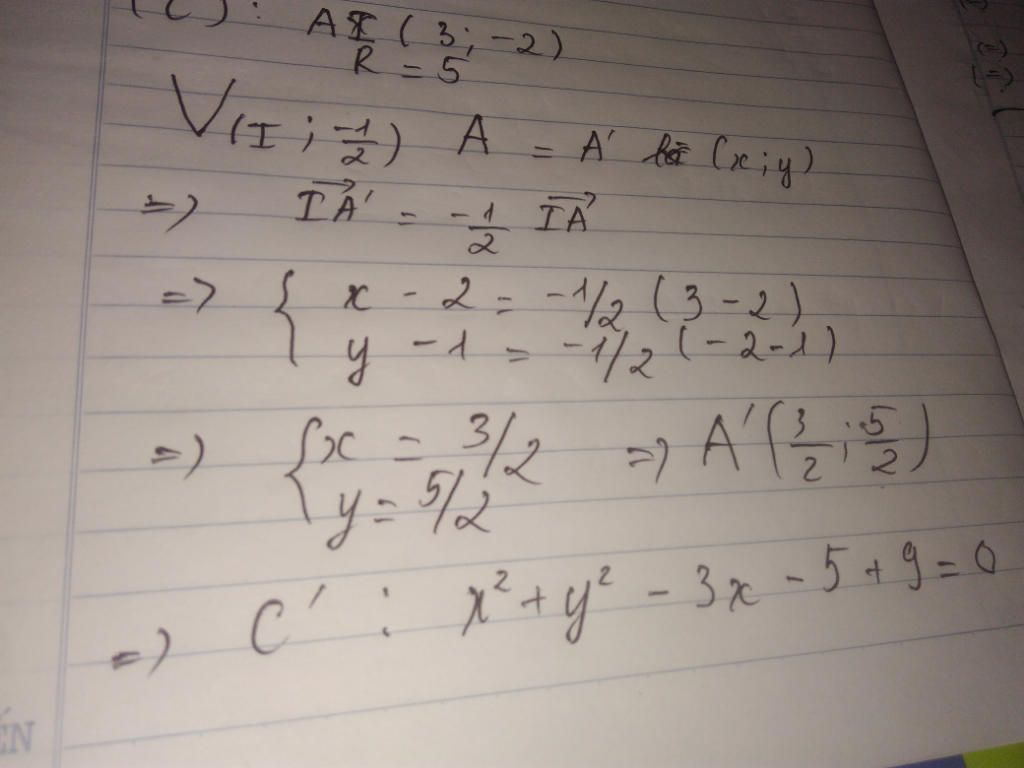 (C): A (3; -2)
R = 5
V(I; -1/2) A = A' (x; y)
=> IA' = -1/2 IA
=> { x - 2 = -1/2 (3 - 2)
y - 1 = -1/2 (-2 - 1)
=> { x = 3/2 => A' (3/2; 5/2)
y = 5/2
=> C' : x² + y² - 3x - 5 + 9 = 0
ẾN